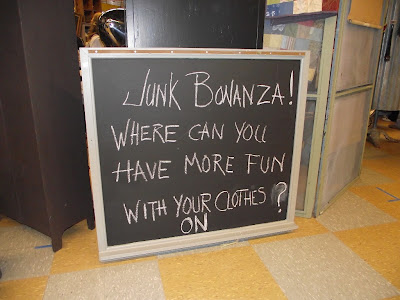 JUNK BONANZA!
WHERE CAN YOU
HAVE MORE FUN
WITH YOUR CLOTHES ?
ON